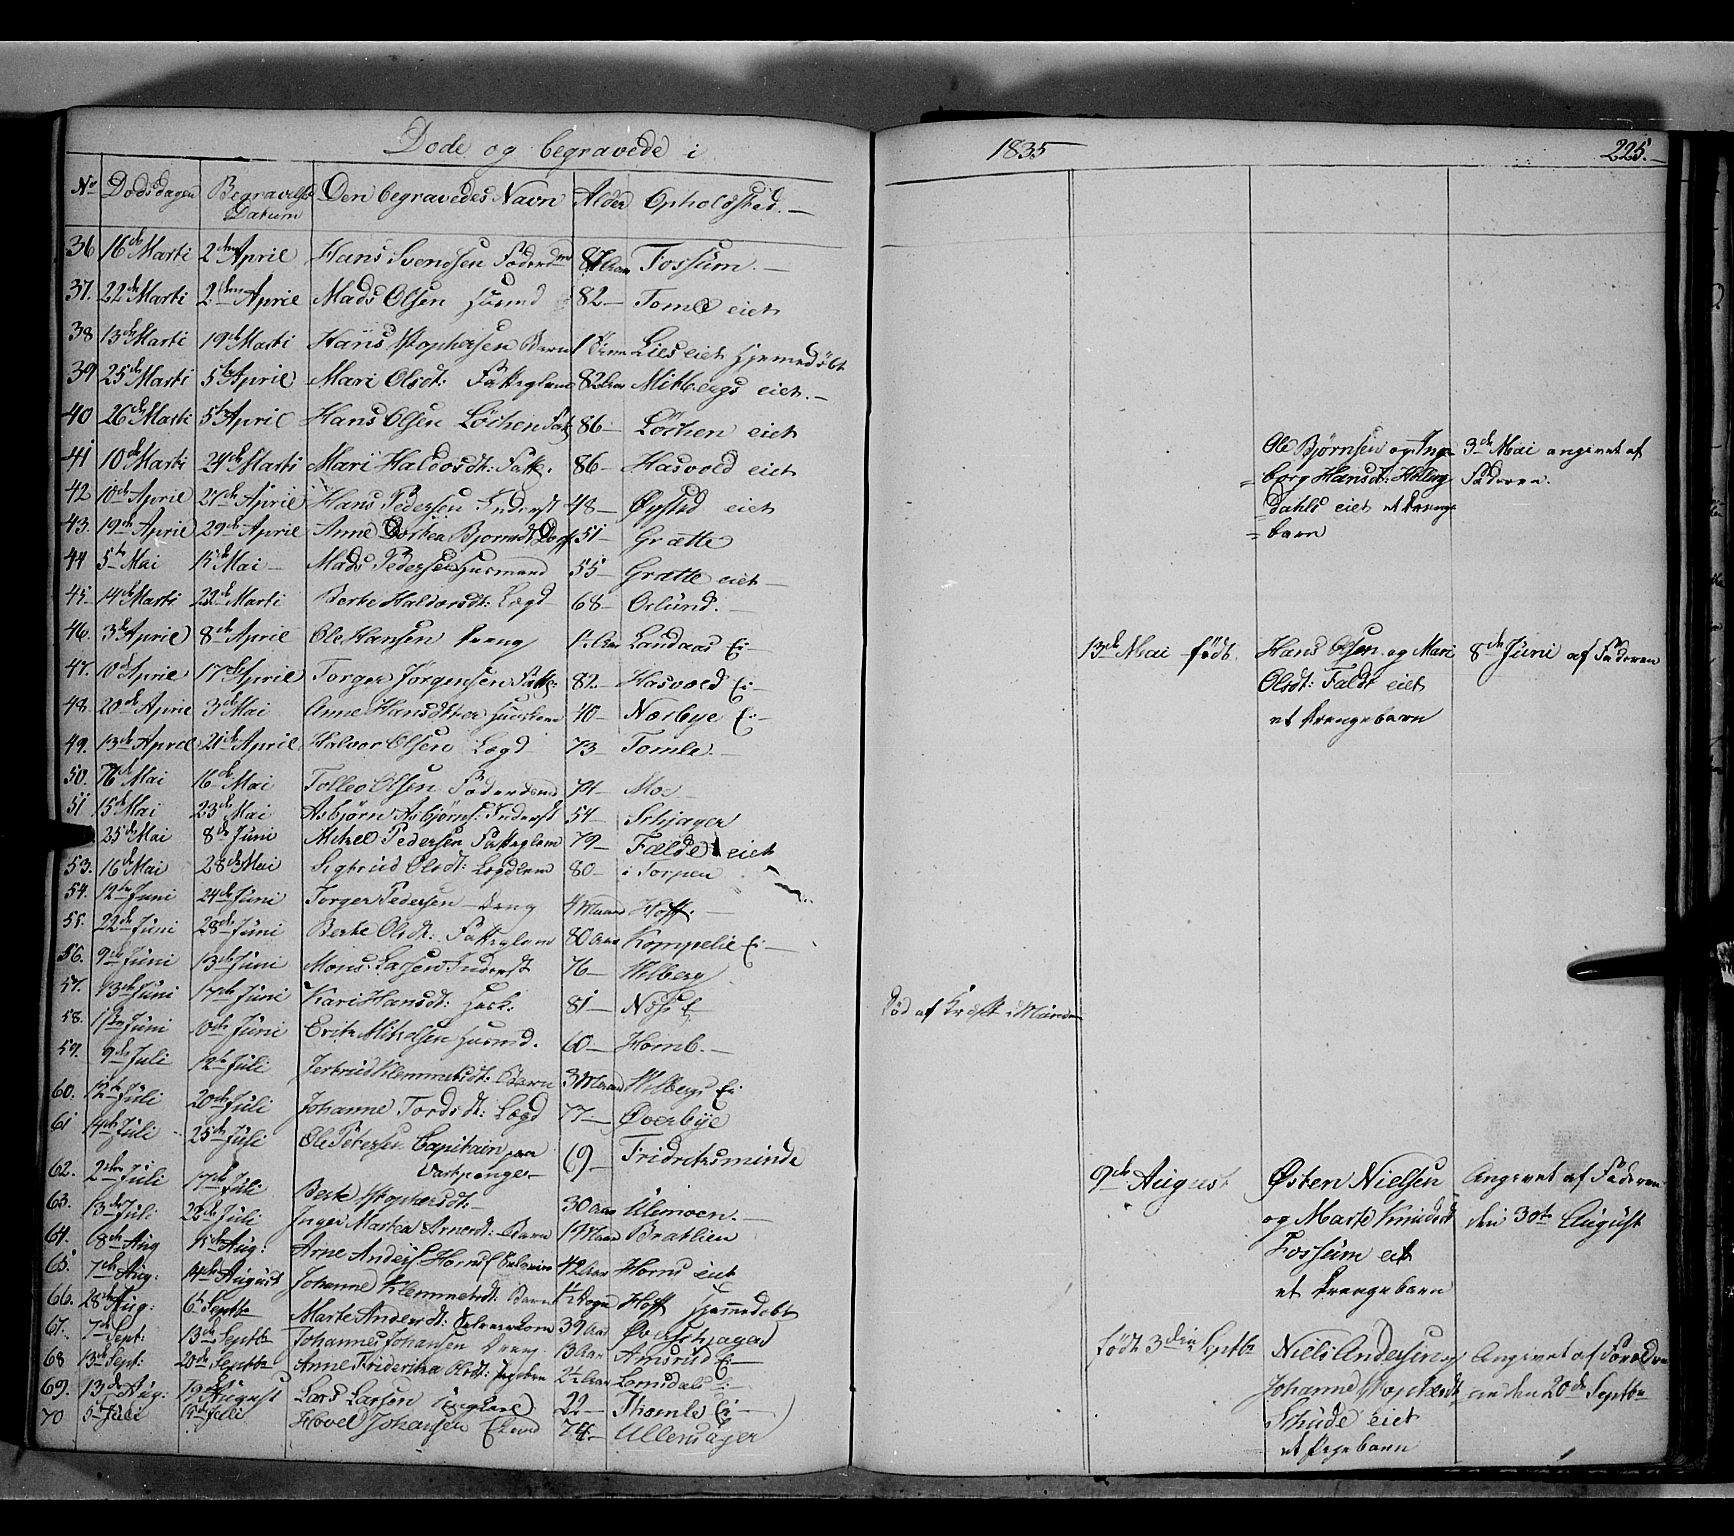 Døde og begravede i 1835 225.
No Dødsdagen Begravelses Datum Den begravedes Navn Alder Opholdsted.
36 16de Marti 2den April Hans Svendsen Føderd 87 Aar Fossum.
37. 22de Marti 2den April Mads Olsen Husmd 82 Tomle eiet
38 13de Marti 19de Marti Hans Chrophersen Barn 1 Lies eiet Hjemedøbt
39 25de Marti 5te April Mari Olsdt: Fattiglem 82 Aar Mitbergs eiet.
40 26de Marti 5te April Hans Olsen Løchen 86 Løchen eiet
41 10de Marti 24de Marti Mari Haldosdt: Fatt. 86 Hasvold eiet
42 10de April 21de April Hans Pedersen Inderst 48 Øysted eiet
43. 19de April 29de April Anne Dorthea Bjørnsdt 51 Grætte
44 5te Mai 15de Mai Mads Pedersen Husmand 55 Grætte eiet
45. 14de Marti 22de Marti Berte Haldorsdt: Lægd 68 Oslund.
46. 3de April 8de April Ole Hansen Dreng 1 Aar Landaas Ei
47. 10de April 17de April Torger Jørgensen Fatt: 82 Hasvold Ei
48. 20de April 3de Mai Anne Hansdtter Huuskone 40 Nærbye Ei
49. 13de April 21de April Halvor Olsen Lægd 73 Tomle.
50. 7de Mai 16de Mai Tollev Olsen Føderdmd 74 Moe
51 15de Mai 23de Mai Asbjørn Asbjørns: Inderst 54 Schjager
25de Mai 8de Juni Mikel Pedersen Fattiglem 79 Fælde eiet
53. 16de Mai 28de Mai Sigtrud Olsdt: Lægdlem 80 i Torpen
54. 12te Juni 24de Juni Torger Pedersen Dreng 4 Maan Hoff.
55. 22de Juni 28de Juni Berte Olsdt: Fattiglem 80 Aar Kompelie Ei
56. 9de Juni 13de Juni Mons Larsen Inderst 76 Hilberg
57. 13de Juni 17de Juni Kari Hansdt: 81
58. 1ste Juni 10de Juni Erik Mikelsen Husmd. 60 Homb. Død af Kræft i Munden
59. 9de Juli 12te Juli Jertrud Klemmetsdt: Barn 3 Maan Hilbergs Ei
60. 12te Juli 20de Juli Johanne Tordsdt: Lægd 77 Øverbye
61 14de Juli 25de Juli Ole Petersen Capitain paa Vartpenge 69 Fridriksminde
62. 2den Juli 17de Juli Berte Chrophersdt: 30 Aar Ulimoen.
63. 13de Juli 22de Juli Inger Martea Arnesdt: Barn 1 Maan Bratlien
64. 8de Aug 15de Aug: Arne Anders: Horns 42 Aar Horns eiet
65. 7de Aug: 14de August Johanne Klemmetsdt: Barn 1/2 Døgn Hoff Hjemmedøbt
66. 28de Aug: 6te Septbr Marte Andersdt: 39 Aar Øverschjager
67. 7de Sept: 13de Septbr Johannes Johansen Dreng 13 Aar Amsrud Ei
68 13de Sept: 20de Septbr Anne Friderika Olsdt: 2 1/2 Aar
69. 13de Aug: 19de August Lars Larsen Ungkarl 22 Thomle Ei
70 5te Juli Hovel Johansen 74 Ullensager
Ole Bjørnsen og Inge-
borg Hansdt: Hilberg
Dahls eiet et Drenge-
barn
3de Mai angivet af
Faderen.
13de Mai født.
Hans Olsen og Mari
Olsdt: Faldt eiet
et Drengebarn
8de Juni af Faderen
9de August
Østen Nielsen
og Marte Knudsdt
Fossum eiet
et Drengebarn
Angivet af Faderen
den 30te August
født 3die Septbr
Niels Andersen og
Johanne Chrophersdt
Schude eiet
et Pigebarn
Angivet af Forældre
ne den 20de Septbr